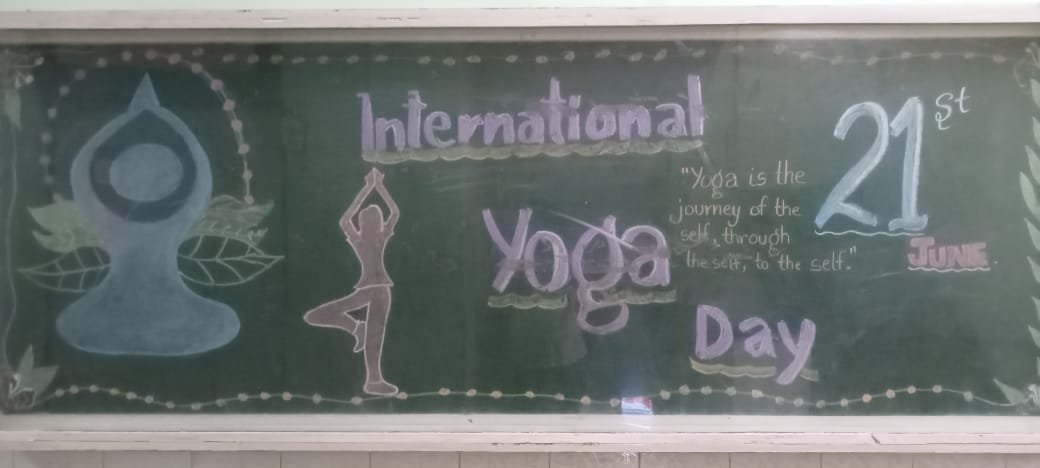 International
Yoga
Day
"Yoga is the
journey of the
self, through
the self, to the self."
21st
JUNE